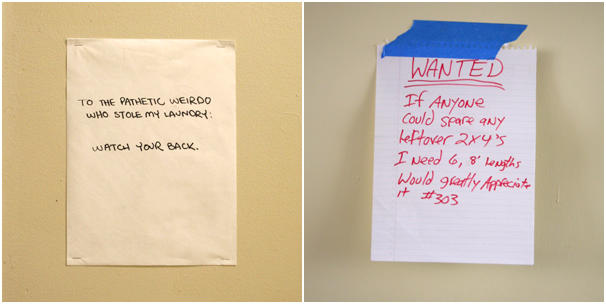 TO THE PATHETIC WEIRDO
WHO STOLE MY LAUNDRY:
WATCH YOUR BACK.
WANTED
If ANYONE
Could spare any
leftover 2x4's
I Need 6, 8' Lengths
Would greatly Appreciate
it #303